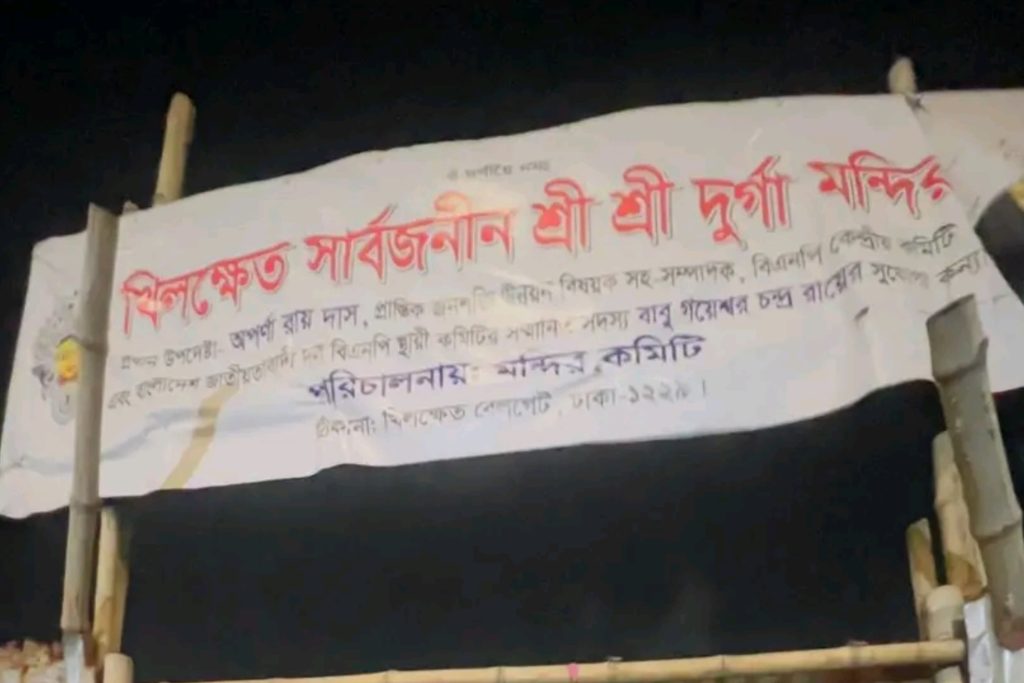 খিলক্ষেত সার্বজনীন শ্রী শ্রী দুর্গা মন্দির
প্রধান উপদেষ্টা- অপর্ণা রায় দাস, প্রান্তিক জনশক্তি উন্নয়ন বিষয়ক সহ-সম্পাদক, বিএনপি কেন্দ্রীয় কমিটি
এবং বাংলাদেশ জাতীয়তাবাদী দল বিএনপি স্থায়ী কমিটির সম্মানিত সদস্য বাবু গয়েশ্বর চন্দ্র রায়ের সুযোগ্য কন্যা
পরিচালনায়: মন্দির কমিটি
ঠিকানা: খিলক্ষেত রেলগেট, ঢাকা-১২২৯।